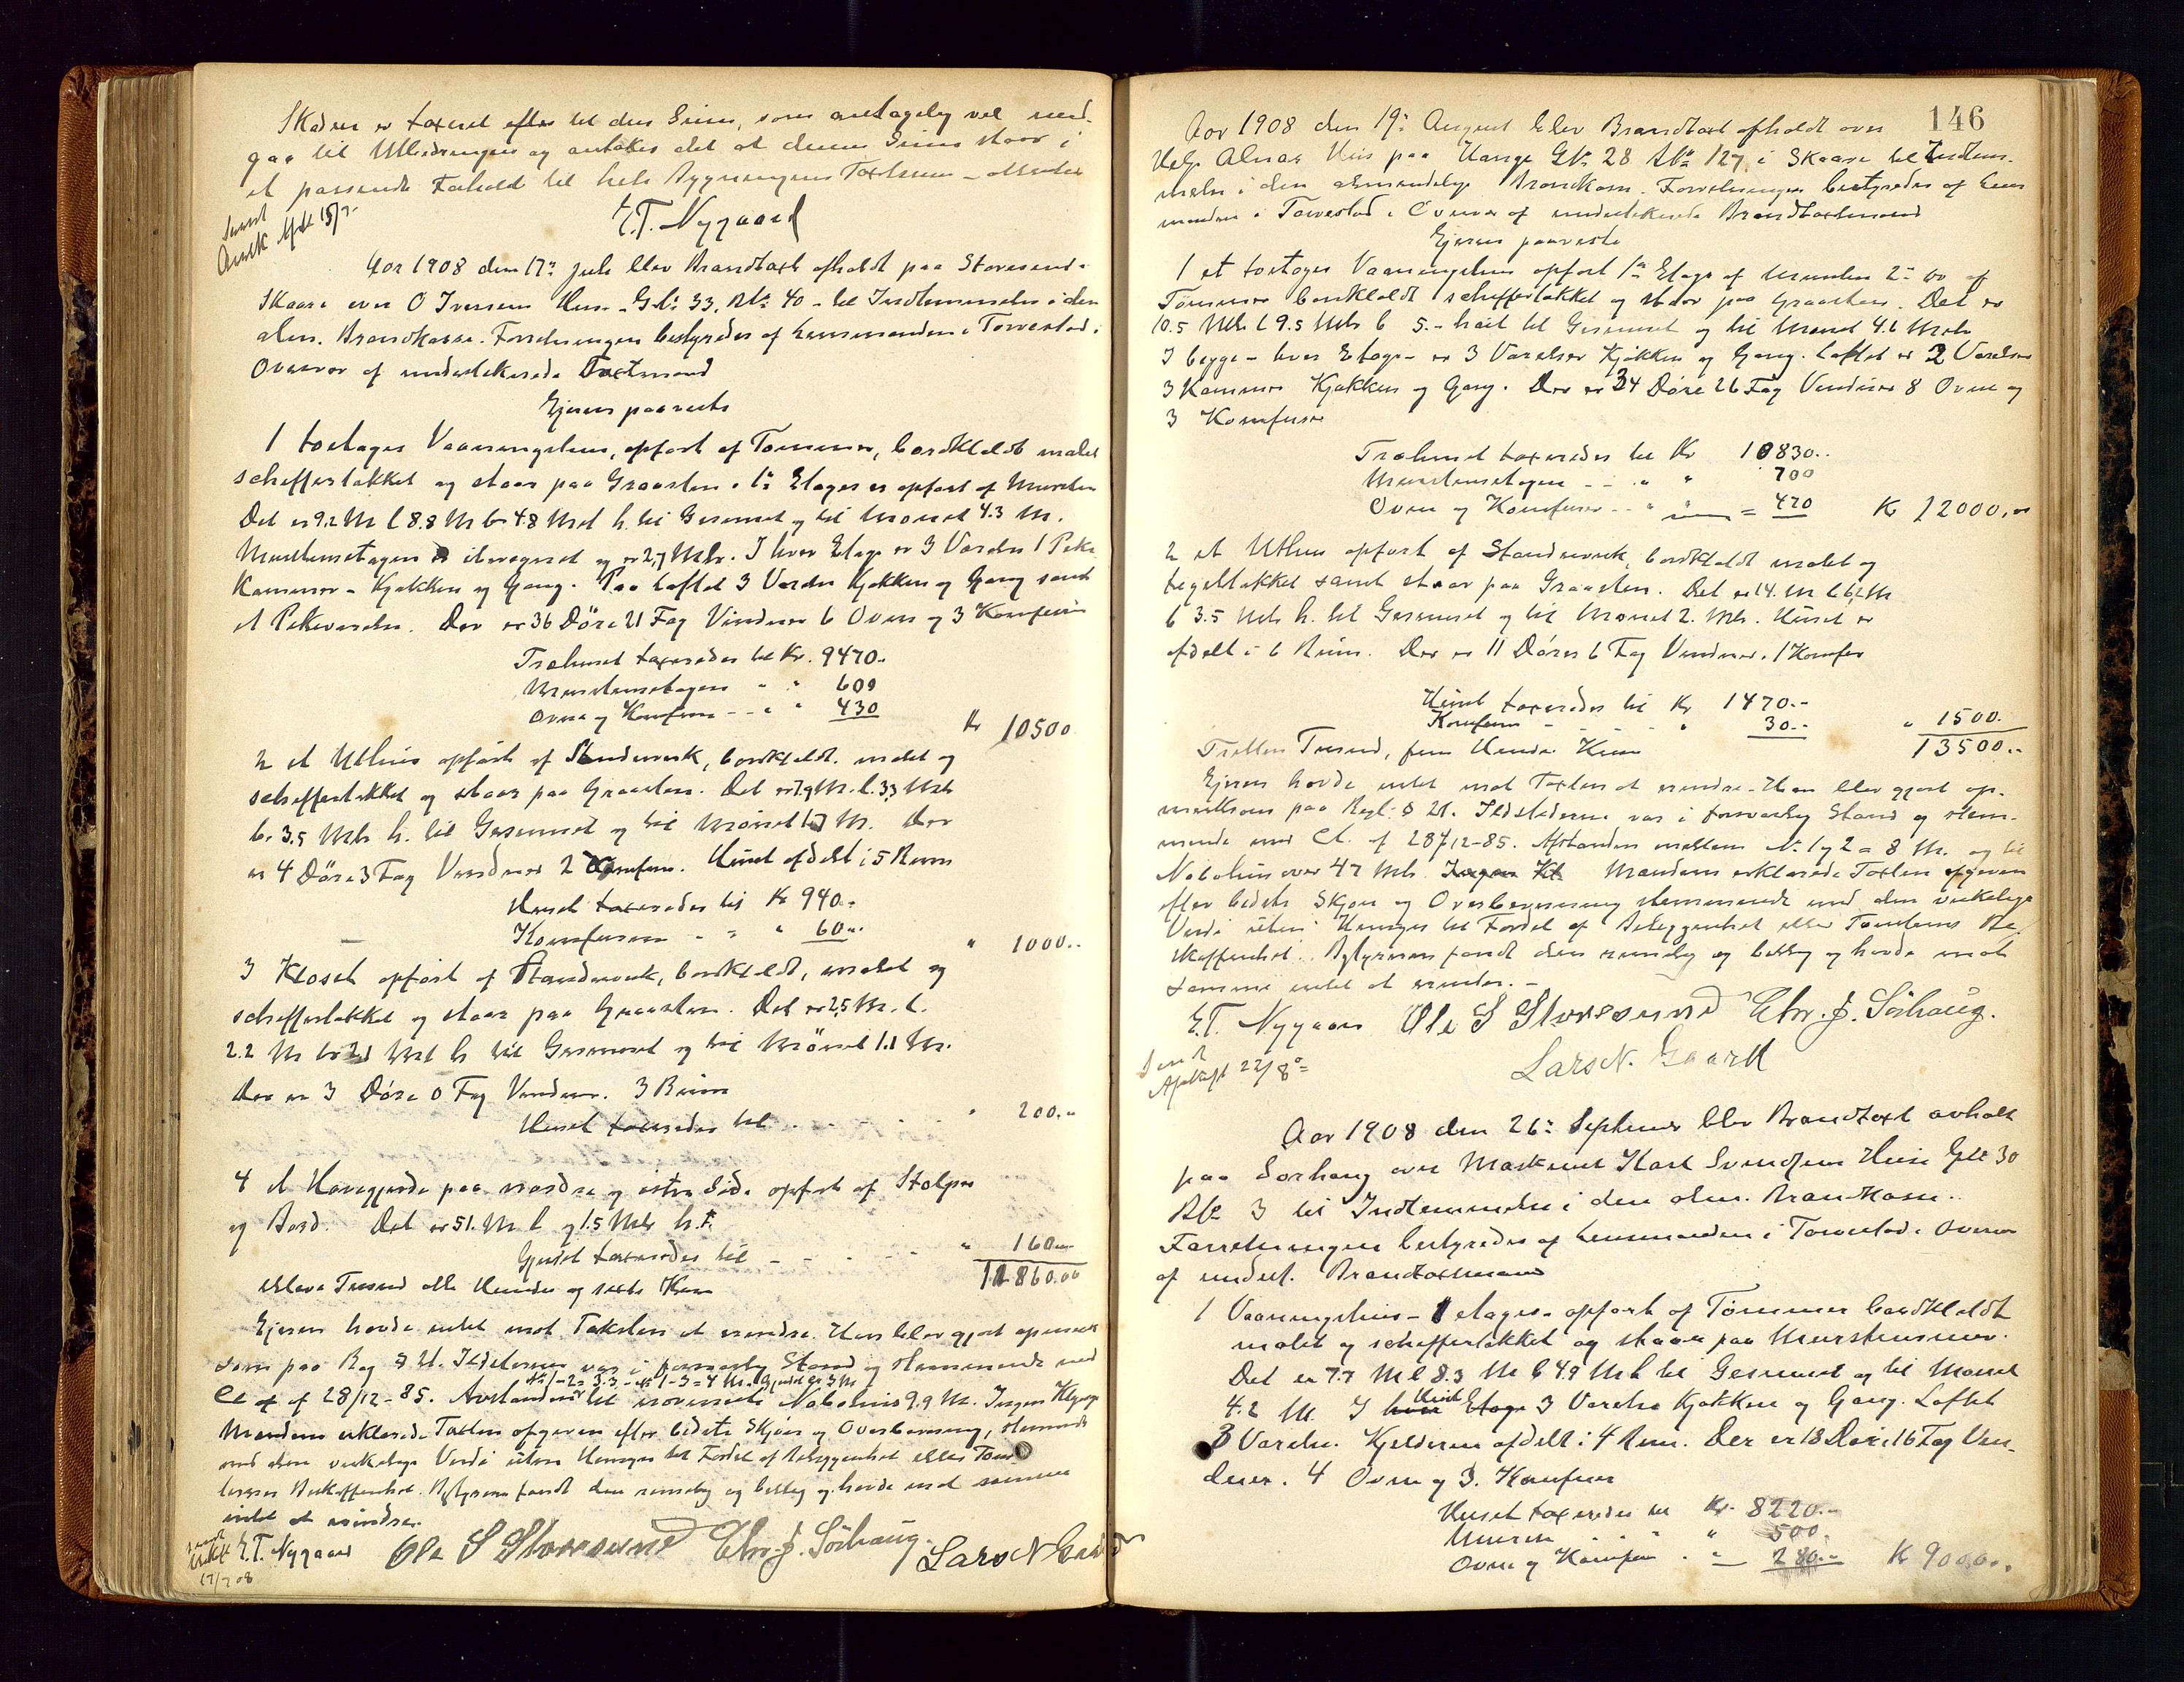 Skaden er taxeret efter til den Sum, som antagelig vil med-
gaa til Utbedringen og antakes det at denne Sum staar i
et passende Forhold til hele Bygningens Taxtsum
Sendt
Avsk 15/7-
E.T. Nygaard
Aar 1908 den 17de Juli blev Brandtaxt afholdt paa Storesund-
Skaare over O Iversens Hus - G.No 33, B.No 40 - til Indtemmelse i den
alm. Brandkasse. Forretningen bestyredes af Lensmanden i Torvestad i
Overvær af underteknede Taxtmænd
Ejeren paaviste
1 toetages Vaaningshus, opført af Tømmer, bordklædt malet
schiffertækket og staar paa Graasten. 1ste Etage er opført af Mursten
Det er 9.2 M l 8.8 M b 4.8 Met h. til Gesimset og til Mønet 4.3 M.
Murstensetagen er iberegnet og er 2,7 Mtr. I hver Etage er 3 Værelser 1 Pike
Kammer - Kjøkken og Gang. Paa Loftet 3 Værelser Kjøkken og Gang samt
et Pikeværelse. Der er 36 Døre 21 Fag Vinduer 6 Ovne og 3 Komfurer
Træhuset taxeredes til Kr. 9470.-
Murstensetagen " " 600
Ovne og Komfurer -- " " 430
Kr 10500
2 et Uthus opført af Standerverk, bordklædt. malet og
schiffertækket og staar paa Graasten. Det er 7.9 M. l. 3,3 Mtr
b. 3.5 Mtr h. til Gesimset og til Mønet 1.7 M. Der
er 4 Døre 3 Fag Vinduer 2 Komfurer. Huset afdelt i 5 Rum
Huset taxeredes til Kr 940.-
Komfurerne - " " 60.-
" 1000.-
3 Kloset opført af Standerverk, bordklædt, malet og
schiffertækket og staar paa Graasten. Det er 2,5 M. l.
2.2 M b 2.1 Met h til Gesimset og til Mønet 1.1 M.
Der er 3 Døre 0 Fag Vinduer. 3 Rum
Huset taxeredes til - - - " 200.-
4 et Havegjerde paa nordre og østre Side opført af Stolper
og Bord. Det er 51. M l og 1.5 Mtr h.
Gjerdet taxeredes til - - - - " 160.-
11860.00
elleve Tusend otte Hundre og sexti Kroner
Ejeren havde intet mot Taksten at erindre. Han blev gjort opmerk
som paa Reg § 21. Ildstederne var i forsvarlig Stand og stemmende med
No 1-2 = 3.3 - No 1-3 = 4 M. Gjerdet er 3 M
Ct af 28/12-85. Avstanden til nærmeste Nabohus 9.9 M. Ingen
Mændene erklærede Taxten afgiven efter bedste Skjøn og Overbevisning, stemmende
med den virkelige Verdi uten Hensyn til Fordel af Beliggenhet eller Tom
tens Beskaffenhet. Bestyreren fandt den rimelig og billig og havde mot samme
intet at erindre.
sendt
17/7 08
E.T. Nygaard Ole S Storesund Chr. J. Sörhaug. Lars N Gaard
146
Aar 1908 den 19de August blev Brandtaxt afholdt over
Helge Alnæs Hus paa Hauge G.No 28 B.No 127 i Skaare til Indtem-
melse i den almindelige Brandkasse. Forretningen bestyredes af Lens
manden i Torvestad i Overvær af undertekende Brandtaxtmænd
Ejeren paaviste
1 et toetages Vaaningshus opført 1ste Etage af Mursten 2den av af
Tømmer bordklædt schiffertækket og staar paa Graasten. Det er
10.5 Mtr l 9.5 Mtr b 5.- høit til Gesimset og til Mønet 4.1 Mtr
I begge - hver Etage - er 3 Værelser Kjøkken og Gang. Loftet er 2 Værelser
3 Kammer Kjøkken og Gang. Der er 34 Døre 26 Fag Vinduer 8 Ovne og
3 Komfurer
Træhuset taxeredes til Kr 10830.-
Murstensetagen - - " " 700
Ovne og Komfurer - - " " = 470 Kr 12000,00
2 et Uthus opført af Standerverk, bordklædt malet og
tegeltækket samt staar paa Graasten. Det er 14. M l 6,2 M
b 3.5 Mtr h. til Gesimset og til Mønet 2. Mtr. Huset er
afdelt i 6 Rum. Der er 11 Døre 6 Fag Vinduer. 1 Komfur
Huset taxeredes til Kr 1470.-
Komfuren - - " 30.- " 1500.-
Tretten Tusend, fem Hundre Kroner 13500.-
Ejeren havde intet mot Taxten at erindre. Han blev gjort op-
merksom paa Regl. § 21. Ildstederne var i forsvarlig Stand og stem-
mende med Ct. af 28/12-85. Afstanden mellem No 1 og 2 = 8 M. og til
Nabohus over 47 Mtr. Mændene erklærede Taxten afgiven
efter bedste Skjøn og Overbevisning stemmende med den virkelige
Verdi uten Hensyn til Fordel af Beliggenhet eller Tomtens Be-
skaffenhet. Bestyreren fandt den rimelig og billig og havde mot
samme intet at erindre. -
E.T. Nygaard Ole S Storesund Chr. J. Sörhaug.
Lars N. Gaard
Sendt
Afskrift 22/8 08
Aar 1908 den 26de September blev Brandtaxt avholdt
paa Sørhaug over Maskinist Karl Svendsens Hus G.No 30
B.No 3 til Indtemmelse i den alm. Brandkasse.
Forretningen bestyredes af Lensmanden i Torvestad i Overvær
af undert. Brandtaxtmænd
1 Vaaningshus - 1 etages - opført af Tømmer bordklædt
malet og schiffertækket og staar paa Murstensmur.
Det er 7.7 M l 8.3 M b 4.9 M h til Gesimset og til Mønet
4.2 M. I hver Huset Etage 3 Værelser Kjøkken og Gang. Loftet
3 Værelser. Kjelderen afdelt i 4 Rum. Der er 18 Døre 16 Fag Vin-
duer. 4 Ovne og 3. Komfurer
Huset taxeredes til Kr. 8220.-
Muren - - " " 500.
Ovne og Komfurer . " 280.- Kr 9000.-